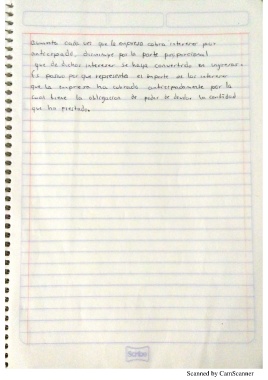 Aumenta cada vez que la empresa cobra intereses por
anticipado, disminuye por la parte proporcional
que de dichos intereses se haya convertido en ingresos.
Es pasivo por que representa el importe de los intereses
que la empresa ha cobrado anticipadamente por la
cual tiene la obligación de
la cantidad
que ha prestado.
Scribe
Scanned by CamScanner